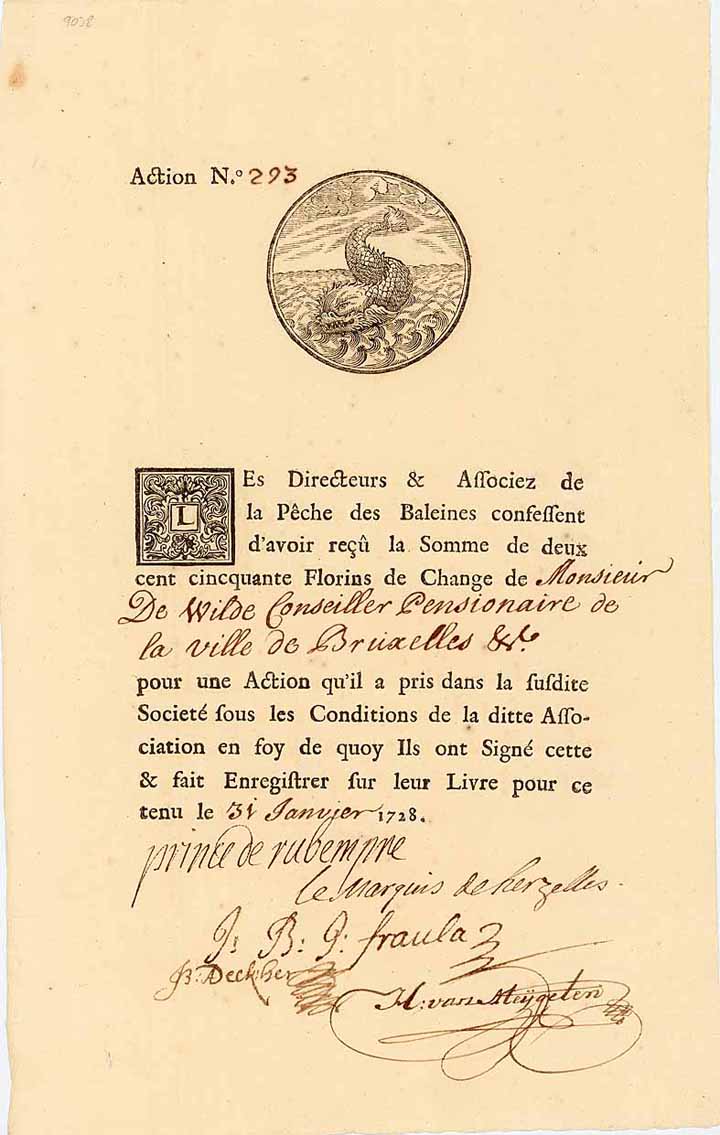 9038
Action N.º 293
LEs Directeurs & Aſſociez de
la Pêche des Baleines confeſſent
d'avoir reçû la Somme de deux
cent cincquante Florins de Change de Monsieur
De Wilde Conseiller Pensionaire de
la ville de Bruxelles &c.
pour une Action qu'il a pris dans la ſuſdite
Societé ſous les Conditions de la ditte Aſſo-
ciation en foy de quoy Ils ont Signé cette
& fait Enregiſtrer ſur leur Livre pour ce
tenu le 31 Janvier 1728.
prince de rubempre
le Marquis de herzelles.
J: B: G: fraula
B: Deckher
H: van Meÿgelen